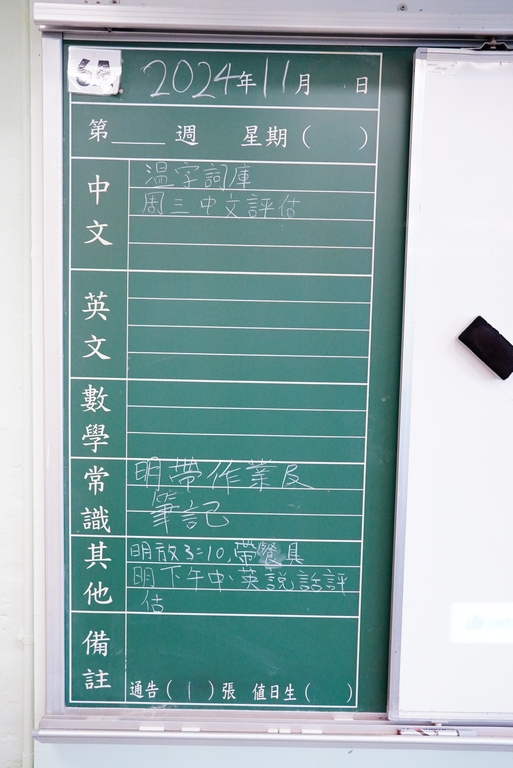 6A 2024年11月 日
第____週 星期( )
中文
温字詞庫
周三中文評估
英文
數學
常識
明帶作業及
筆記
其他
明放3:10,帶餐具
明下午中、英說話評
估
備註
通告(1)張 值日生( )